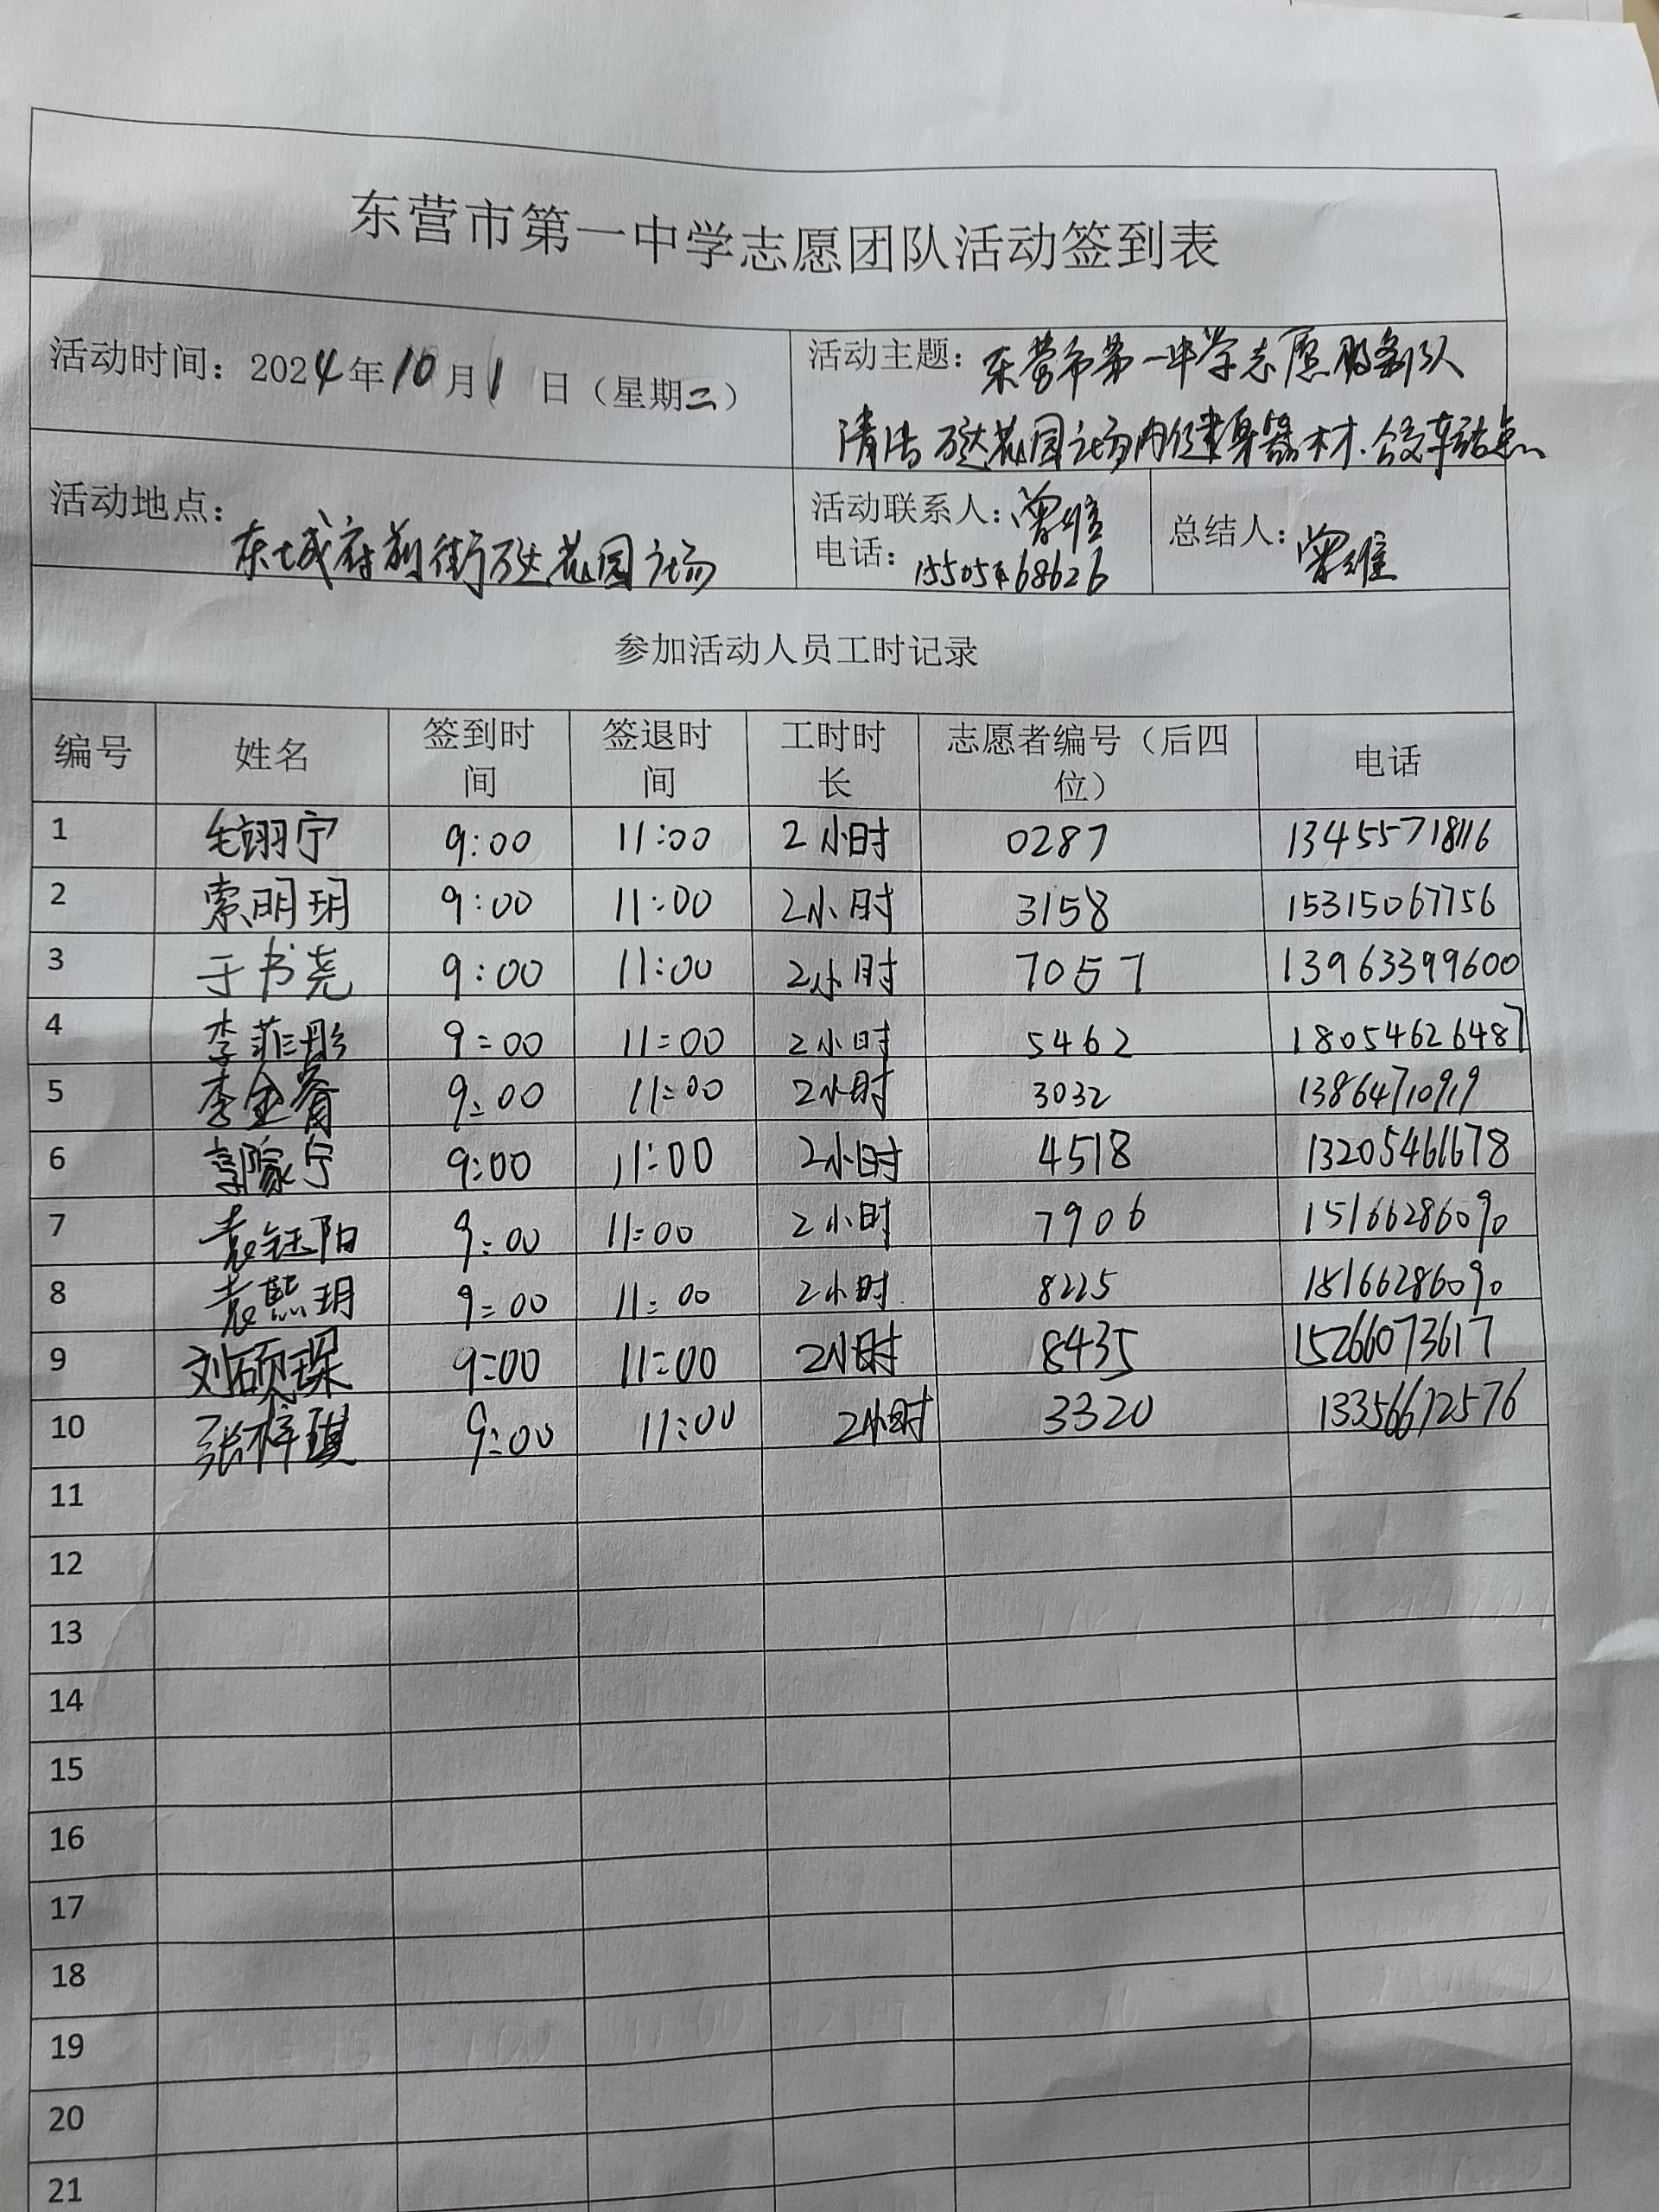 东营市第一中学志愿团队活动签到表
活动时间：2024年10月1日（星期二）
活动主题：东营市第一中学志愿服务队
清洁万达花园广场内健身器材.公交车站点
活动地点：东城府前街万达花园广场
活动联系人：曾维
电话：15505468626
总结人：曾维
参加活动人员工时记录
编号 姓名 签到时间 签退时间 工时时长 志愿者编号（后四位） 电话
1 毛翊宁 9:00 11:00 2小时 0287 13455718116
2 索明玥 9:00 11:00 2小时 3158 15315067756
3 于书尧 9:00 11:00 2小时 7057 13963399600
4 李菲彤 9:00 11:00 2小时 5462 18054626487
5 李金睿 9:00 11:00 2小时 3032 13864710919
6 宁 9:00 11:00 2小时 4518 13205461678
7 袁钰阳 9:00 11:00 2小时 7906 15166286090
8 袁熙玥 9:00 11:00 2小时 8225 15166286090
9 刘硕琛 9:00 11:00 2小时 8435 15266073617
10 张梓琪 9:00 11:00 2小时 3320 13356612576
11
12
13
14
15
16
17
18
19
20
21